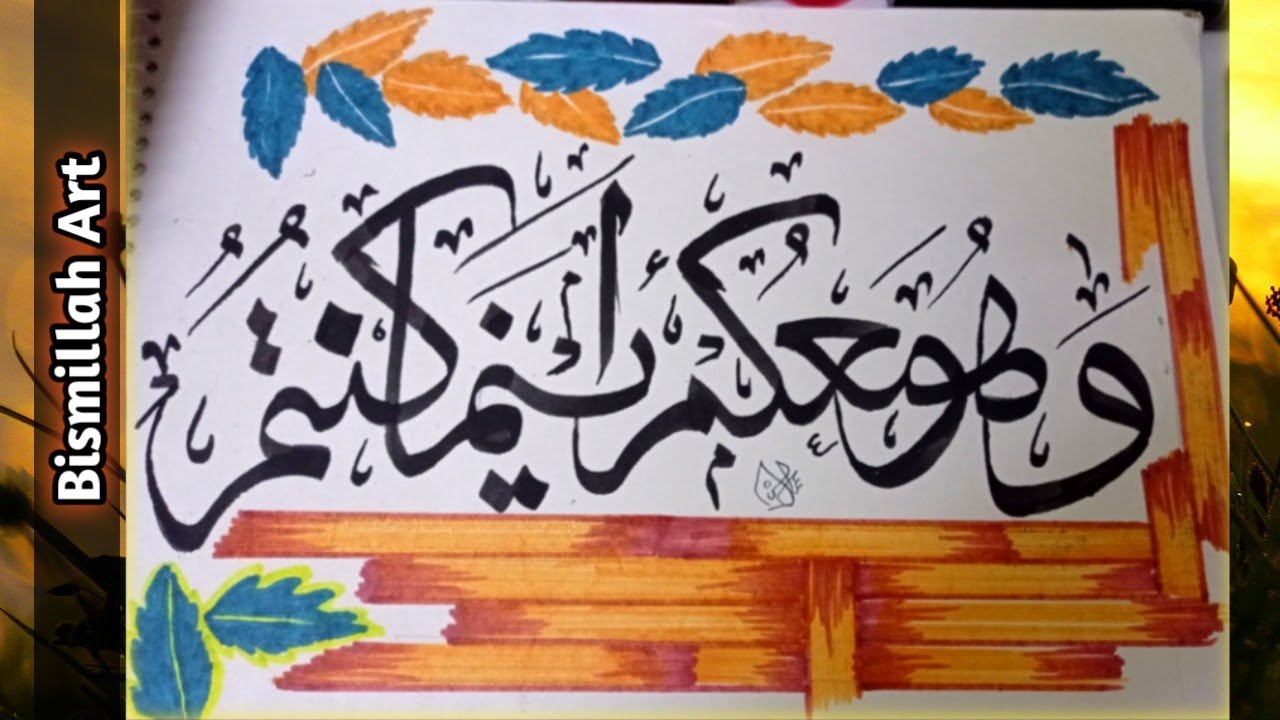 Bismillah Art
وَهُوَ مَعَكُمْ أَيْنَمَا كُنْتُمْ